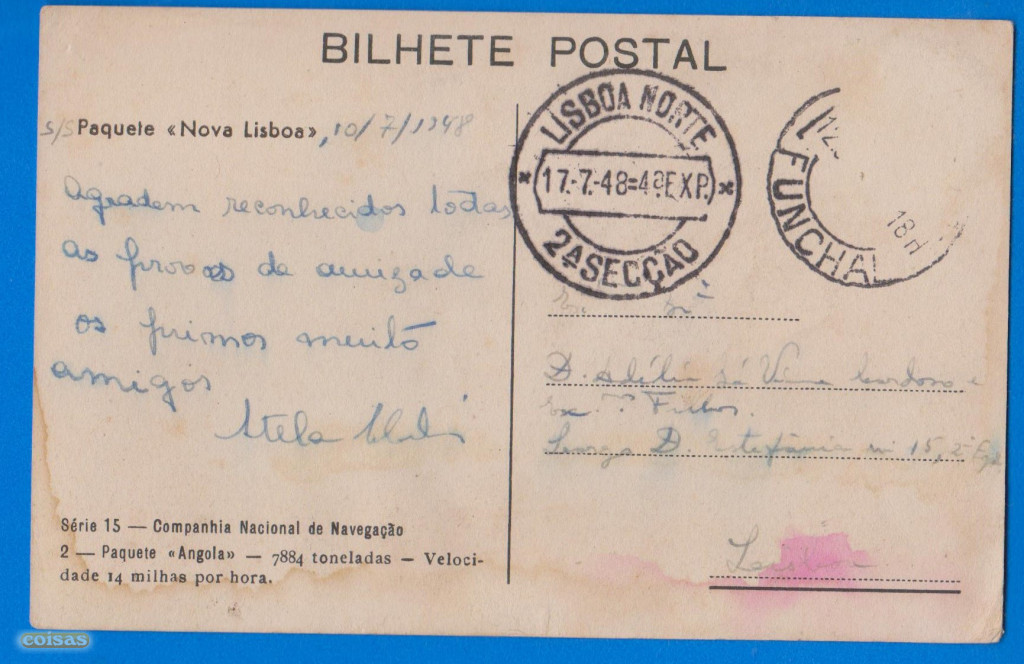 BILHETE POSTAL
S/S Paquete «Nova Lisboa», 10/7/1948
Agradem reconhecidos todas
as provas de amizade
os primos muito
amigos
Stela
Série 15 — Companhia Nacional de Navegação
2 — Paquete «Angola» — 7884 toneladas — Veloci-
dade 14 milhas por hora.
LISBOA NORTE
17.-7.-48=4ªEXP.
2ª SECÇÃO
FUNCHAL
18H
D. Adélia Sá Viana Cardoso e
Ex.mos Filhos.
Largo D. Estefânia nº 15, 2º
Lisboa
coisas